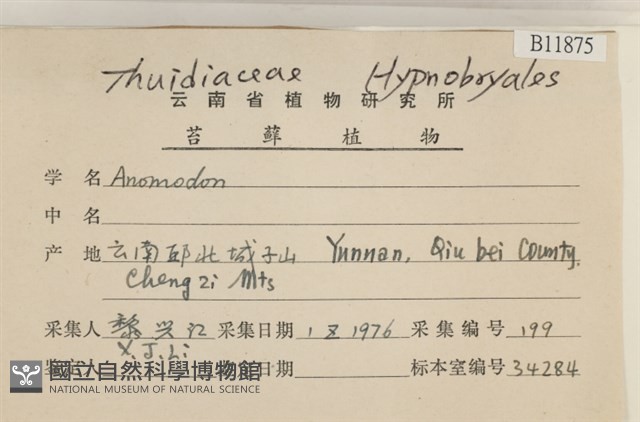 B11875
Thuidiaceae Hypnobryales
云南省植物研究所
苔藓植物
学名 Anomodon
中名
产地 云南邱北城子山 Yunnan, Qiu bei County,
Cheng zi Mts
采集人 黎兴江 采集日期 1 1976 采集编号 199
X. J. Li
日期 标本室编号 34284
國立自然科學博物館
NATIONAL MUSEUM OF NATURAL SCIENCE